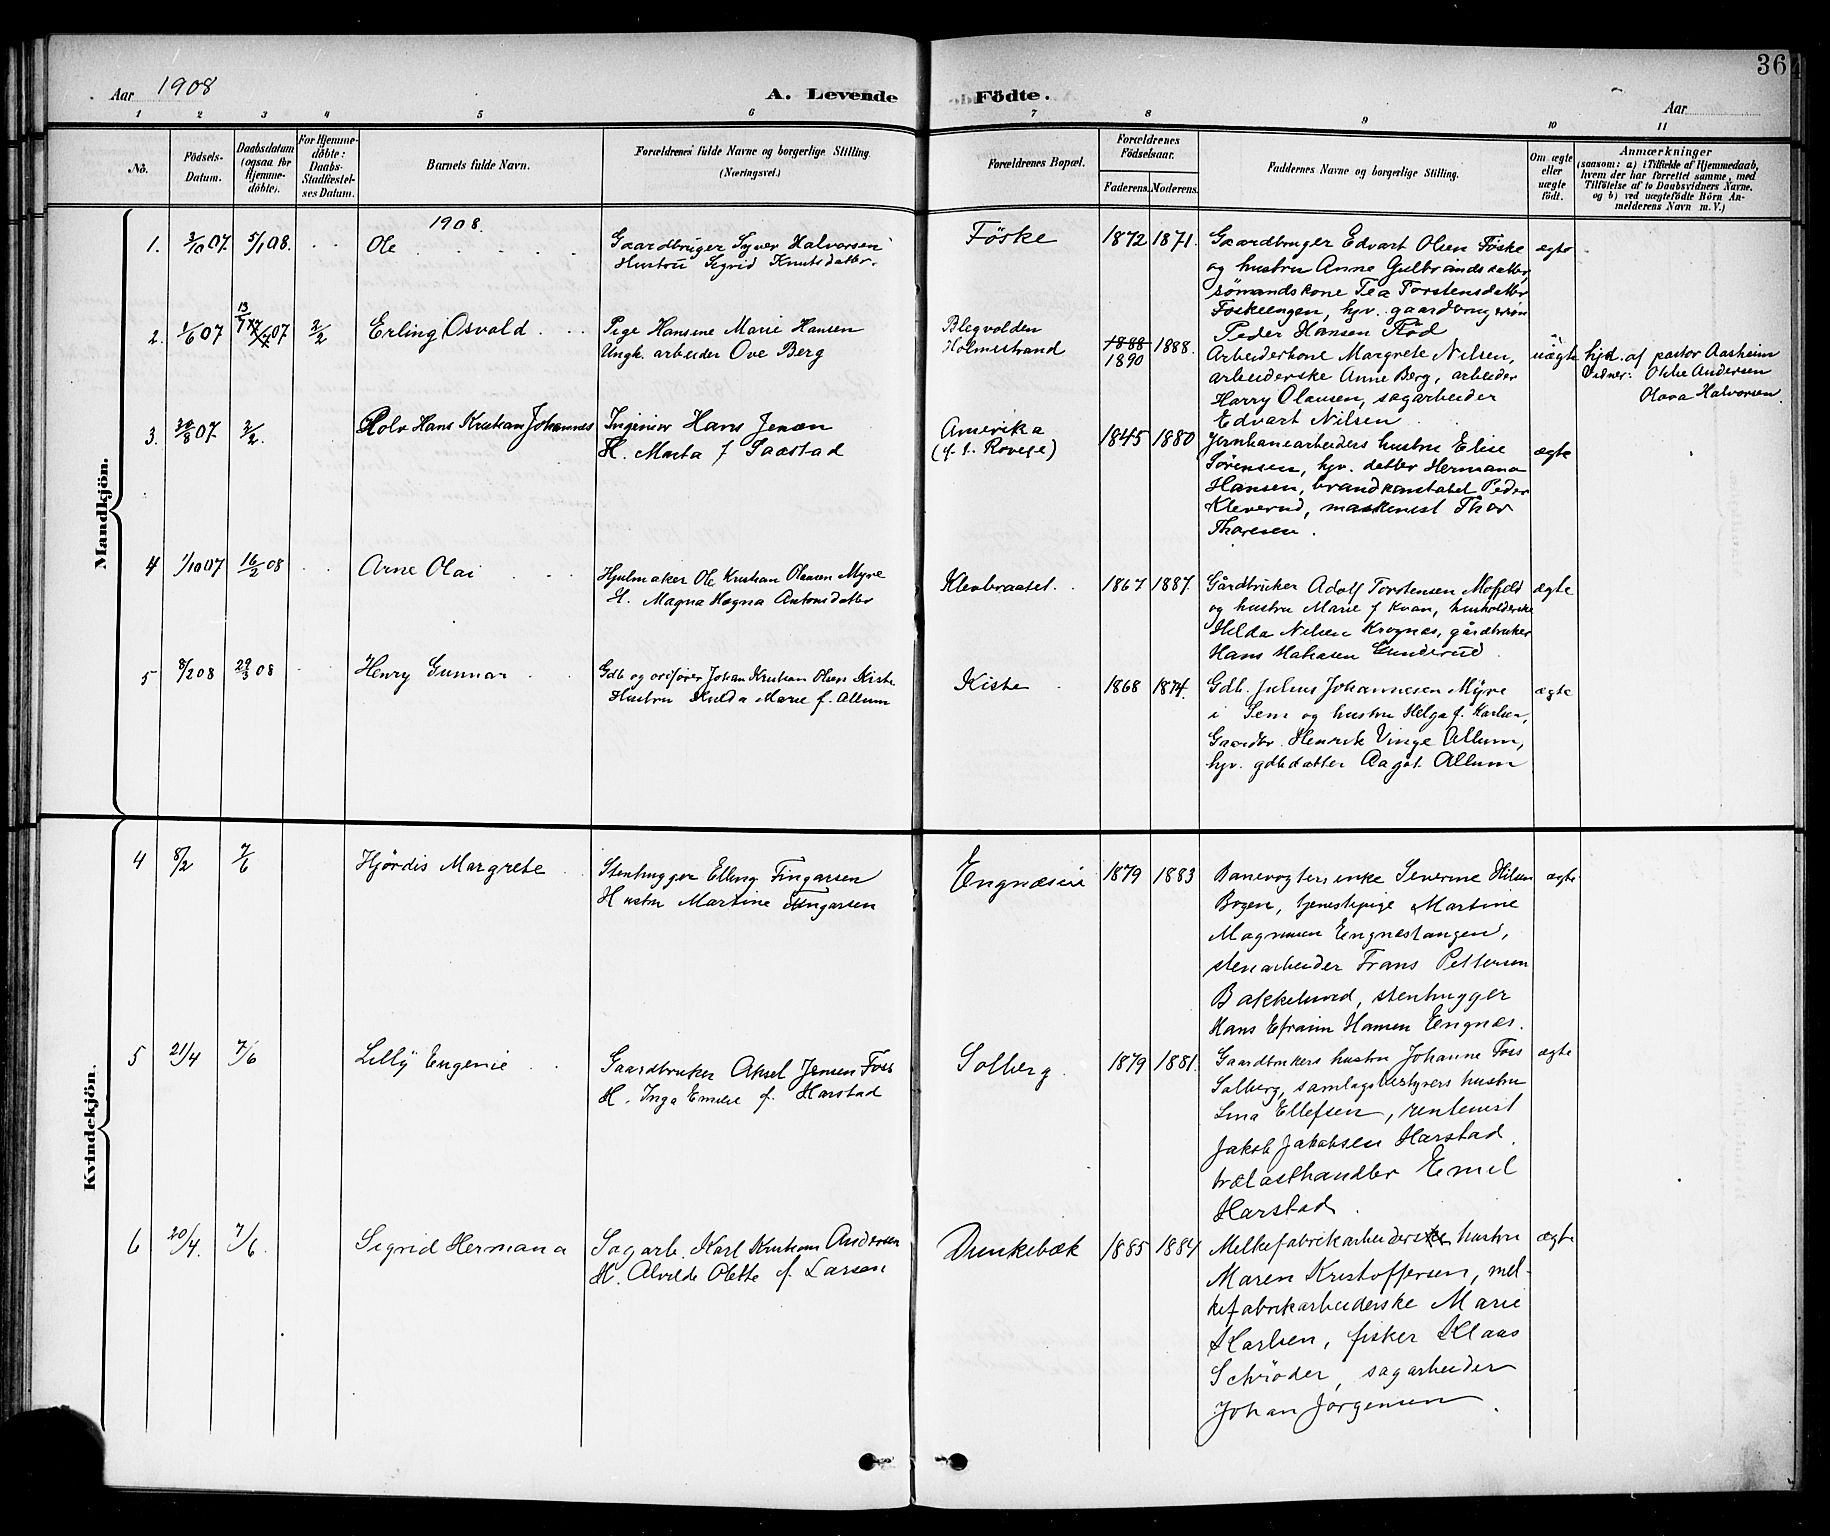 Aar 1908
A. Levende Födte.
364
Aar
1 2 3 4 5 6 7 8 9 10 11
No.
Födsels-Datum.
Daabsdatum (ogsaa for Hjemme-döbte).
For Hjemme-döbte: Daabs-Stadfæstel-ses Datum.
Barnets fulde Navn.
Forældrenes fulde Navne og borgerlige Stilling. (Næringsvei.)
Forældrenes Bopæl.
Forældrenes Födselsaar.
Faderens. Moderens.
Faddernes Navne og borgerlige Stilling.
Om ægte eller uægte födt.
Anmærkninger
(saasom: a) i Tilfælde af Hjemmedaab,
hvem der har forrettet samme, med
Tilföielse af to Daabsvidners Navne.
og b) ved uægtefödte Börn An-
melderens Navn m. V.)
Mandkjön.
1908.
1. 07. 5/1 08. Ole
Gaardbruger Syver Halvorsen
Hustru Sigrid Knutsdatter.
Föske 1872 1871.
Gaardbruger Edvart Olsen Föske
og hustru Anne Gulbrandsdatter,
sömandskone Tea Torstensdatter
Foskeengen, hjv. gaardbrugersön
Peder Hansen Röd
ægte
2. 1/6 07 07 2/2 Erling Osvald
Pige Hansine Marie Hansen
Ungk. arbeider Ove Berg
Blegvolden
Holmestrand
1888
1890
1888.
Arbeiderkone Margrete Nilsen,
arbeiderske Anne Berg, arbeider
Harry Olausen, sagarbeider
Edvart Nilsen
uægte
hjd. af pastor Aasheim
Vidner: Andersen
Olava Halvorsen.
3. 07. 2/2. Rolv Hans Kristian Johannes
Ingeniör Hans Jensen
H. Marta f Saastad
Amerika
1845 1880
Jernbanearbeiders hustru Elise
Sörensen, hjv. datter Hermana
Hansen, brandkonstabel Peder
Kleverud, maskenist Thor
Thoresen.
ægte
4 1/10 07 16/2 08 Arne Olai
Hjulmaker Ole Kristian Olausen Myre
H. Magna Hagna Antonsdatter
1867 1887.
Gårdbruker Adolf Torstensen Mofjeld
og hustru Marie f Kvan, husholderske
Hilda Nilsen Krognæs, gårdbruker
Hans Gunderud
ægte
5 8/2 08 29/3 08 Henry Gunnar
Gdb og Johan Kristian Olsen Kiste
Hustru Hulda Marie f. Allum
Kiste 1868 1874.
Gdb. Julius Johannesen Myre
i Sem og hustru Helga f. Karlsen,
Gaardbr. Henrik Vinge Allum,
hjv. gdbdatter Aagot Allum
ægte
Kvindekjön.
4 8/2 7/6 Hjördis Margrete
Stenhugger Elling Fingarsen
Hustru Martine Fingarsen
1879 1883
Banevogterenke Severine Nilsen
Bogen, tjenestepige Martine
Magnusen Engnestangen,
stenarbeider Frans Pettersen
Bakkelund, stenhugger
Hans Efraim Hansen Engnæs.
ægte
5 21/4 7/6 Lilly Eugenie
Gaardbruker Aksel Jensen Foss
H. Inga Emilie f. Harstad
Solberg. 1879 1881.
Gaardbrukers hustru Johanne Foss
Solberg, samlagsbestyrers hustru
Lina Ellefsen, rentenist
Jakob Jakobsen Harstad,
trælasthandler Emil
Harstad.
ægte
6 20/4. 7/6. Sigrid Hermana
Sagarb. Karl Kristian Andersen
H. Alvilde Olette f. Larsen
Dunkebæk 1885 1884
Melkefabrikarbeiders hustru
Maren Kristoffersen, mel-
kefabrikarbeiderske Marie
Karlsen, fisker Klaas
Schröder, sagarbeider
Johan Jörgensen.
ægte